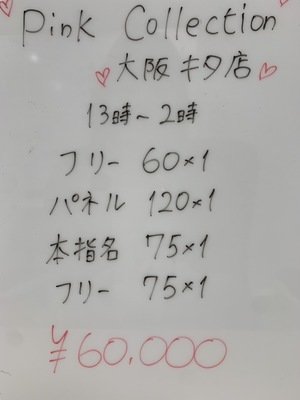 Pink Collection
♡大阪キタ店♡
13時~2時
フリー 60×1
パネル 120×1
本指名 75×1
フリー 75×1
¥60.000